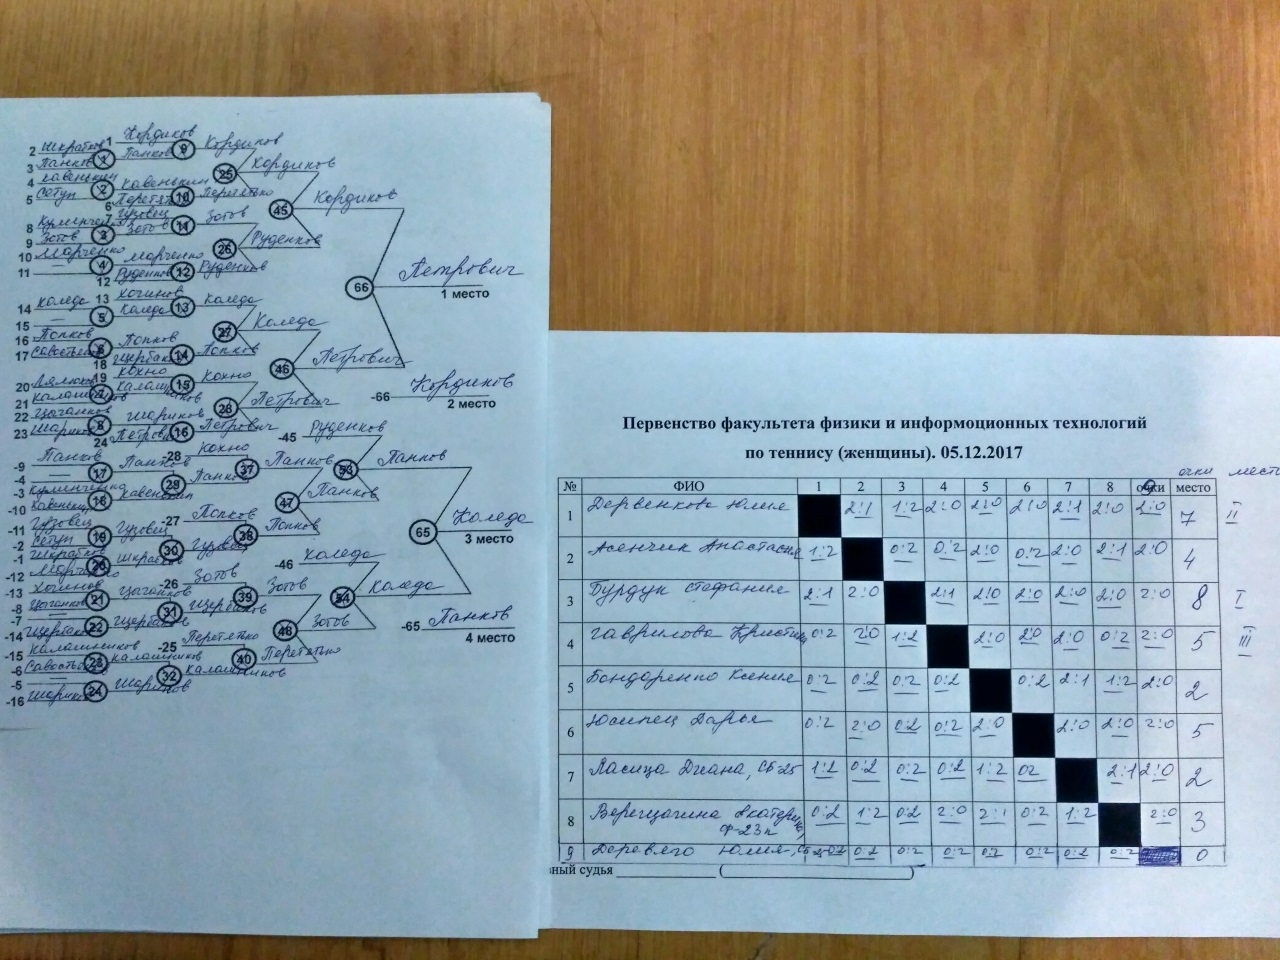 1 Кордиков
2 Шкрабков
3 Панков
1
Панков 9 Кордиков
4 Кавенькин
5 Сетун
2
Кавенькин
25 Кордиков
6
10
7 Гузовец
8
9 Зотов
3
Зотов 11 Зотов
45 Кордиков
10 Марченко
11 —
4
Марченко
26 Руденков
12 Руденков 12 Руденков
66 Петрович
1 место
13 Хочинов
14 Коледа
15 —
5
Коледа 13 Коледа
16 Попков
17
6
Попков
27 Коледа
18 14 Попков
46 Петрович
19 Кохно
20
21 Калашников
7
15 Кохно
-66 Кордиков
2 место
22 Цыганков
23 Шариков
8
Шариков
28 Петрович
24 Петрович 16 Петрович
-45 Руденков
-9 Панков
-4 —
17
Панков
-28 Кохно
29 Панков
37 Панков
53 Панков
-3 Куминченко
-10 Кавенькин
18
Кавенькин
47 Панков
-11 Гузовец
-2 Сетун
19
Гузовец
-27 Попков
30 Гузовец
38 Попков
65 Коледа
3 место
-1 Шкрабков
-12 Марченко
20
Шкрабков
-46 Коледа
-13 Хочинов
-8 Цыганков
21
Цыганков
-26 Зотов
31 Щербаков
39 Зотов
Коледа
-7 —
-14 Щербаков
22
Щербаков
48 Зотов
-65 Панков
4 место
-15 Калашников
-6
23
Калашников
-25 Перетятько
32 Калашников
40 Перетятько
-5 —
-16 Шариков
24
Шариков
Первенство факультета физики и информоционных технологий
по теннису (женщины). 05.12.2017
очки место
№ ФИО 1 2 3 4 5 6 7 8 9 место
1 Дервенкова Юлия 2:1 1:2 2:0 2:0 2:0 2:1 2:0 2:0 7 II
2 Асенчик Анастасия 1:2 0:2 0:2 2:0 0:2 2:0 2:1 2:0 4
3 Бурдук Стефания 2:1 2:0 2:1 2:0 2:0 2:0 2:0 2:0 8 I
4 Гаврилова Кристина 0:2 2:0 1:2 2:0 2:0 2:0 0:2 2:0 5 III
5 Бондаренко Ксения 0:2 0:2 0:2 0:2 0:2 2:1 1:2 2:0 2
6 Юсипец Дарья 0:2 2:0 0:2 0:2 2:0 2:0 2:0 2:0 5
7 Ласица Диана, СБ-25 1:2 0:2 0:2 0:2 1:2 02 2:1 2:0 2
8 Верещагина Екатерина, Ф-23п 0:2 1:2 0:2 2:0 2:1 0:2 1:2 2:0 3
9 Деревяго Юлия, 0:2 0:2 0:2 0:2 0:2 0:2 0:2 0
ный судья ____________ (____________________)